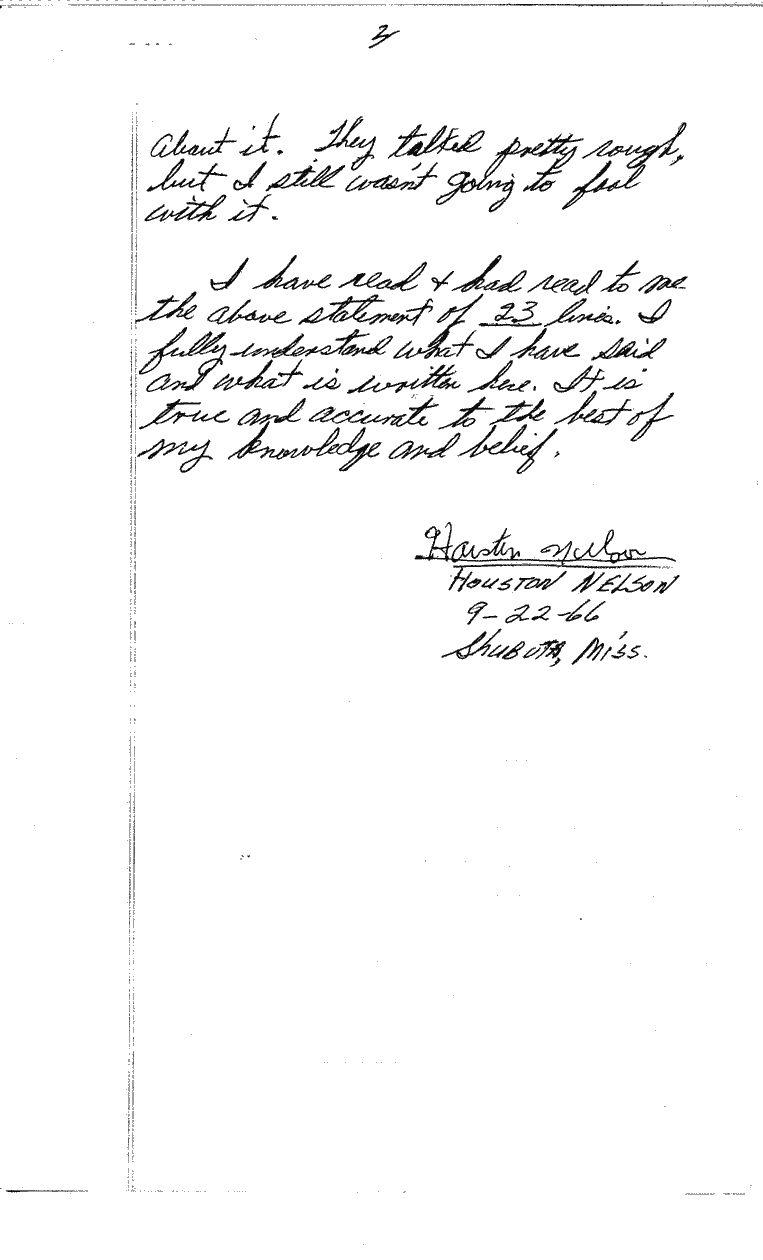 2
about it. They talked pretty rough,
but I still wasn't going to fool
with it.
I have read & had read to me
the above statement of 23 lines. I
fully understand what I have said
and what is written here. It is
true and accurate to the best of
my knowledge and belief.
Houston Nelson
HOUSTON NELSON
9-22-66
Shubuta, Miss.